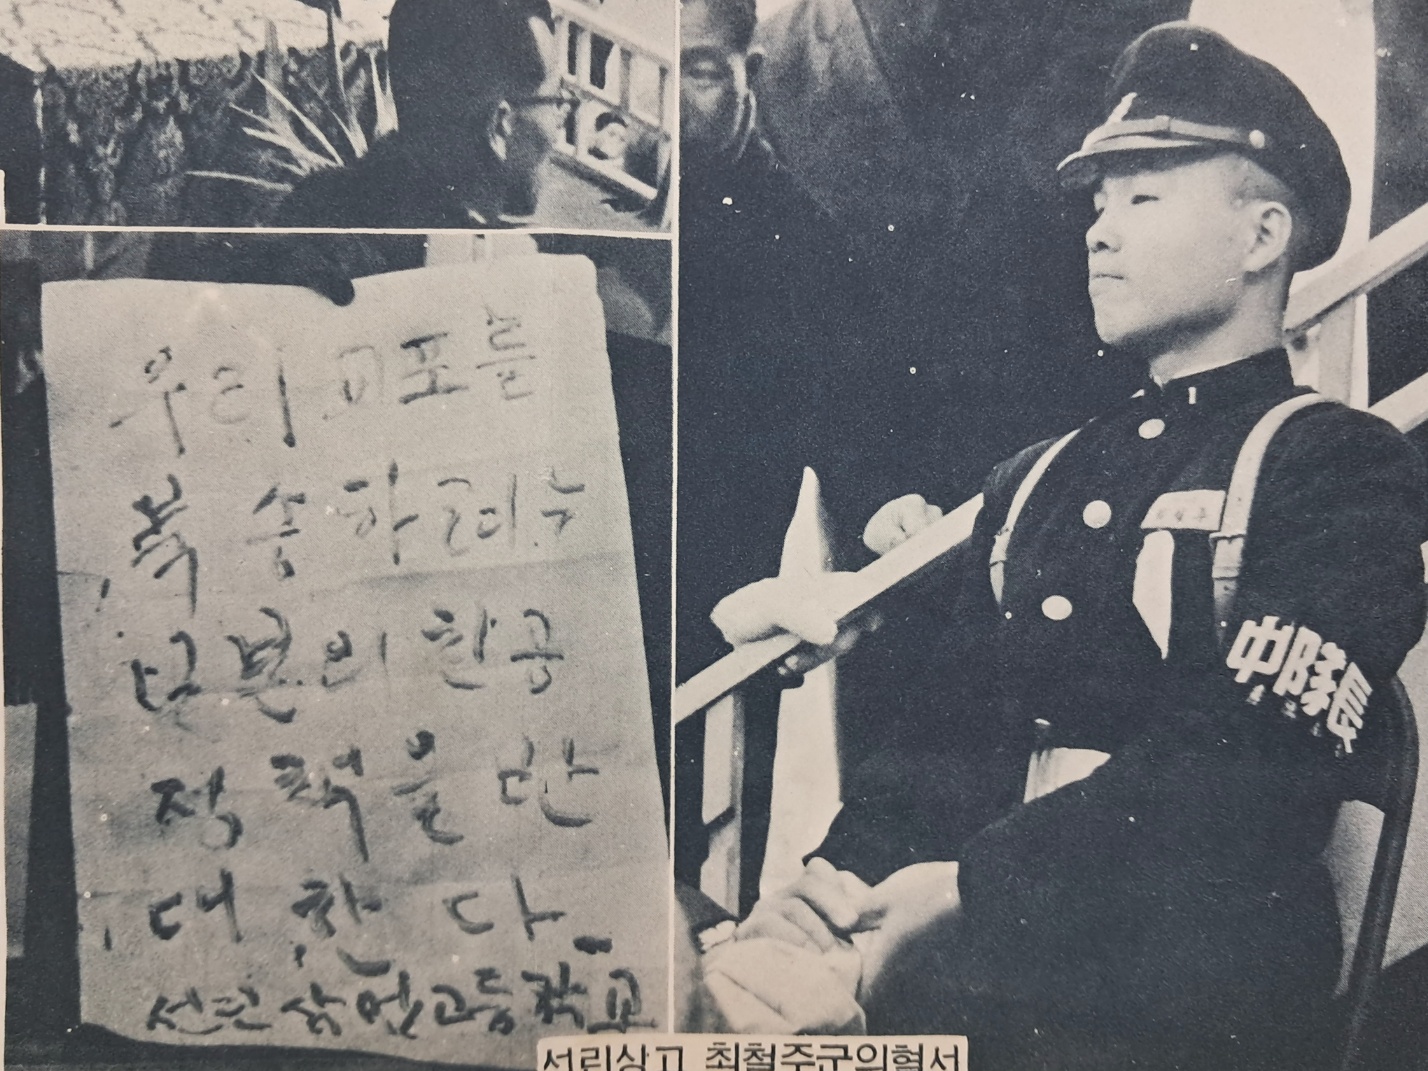 우리 교포를
북송하려는
일본의
정책을 반
대한다
선린상업고등학교
中隊長
선린상고 최철주군의혈서